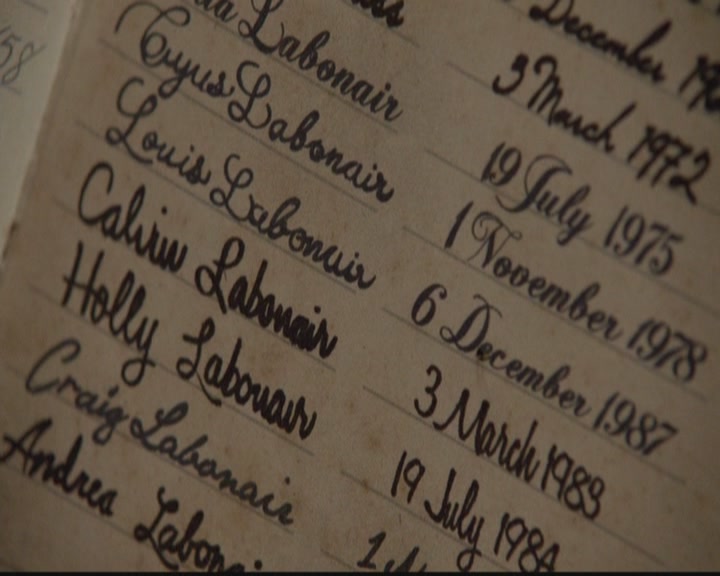 58
December 19
3 March 1972
Labonair 19 July 1975
Cyrus Labonair 1 November 1978
Louis Labonair 6 December 1987
Calvin Labonair 3 March 1983
Holly Labonair 19 July 1984
Craig Labonair 1
Andrea Labonai